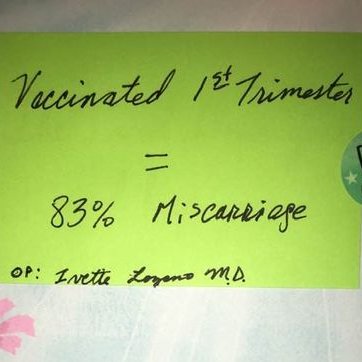 Vaccinated 1st Trimester
=
83% Miscarriage
OP: Ivette Lozano M.D.